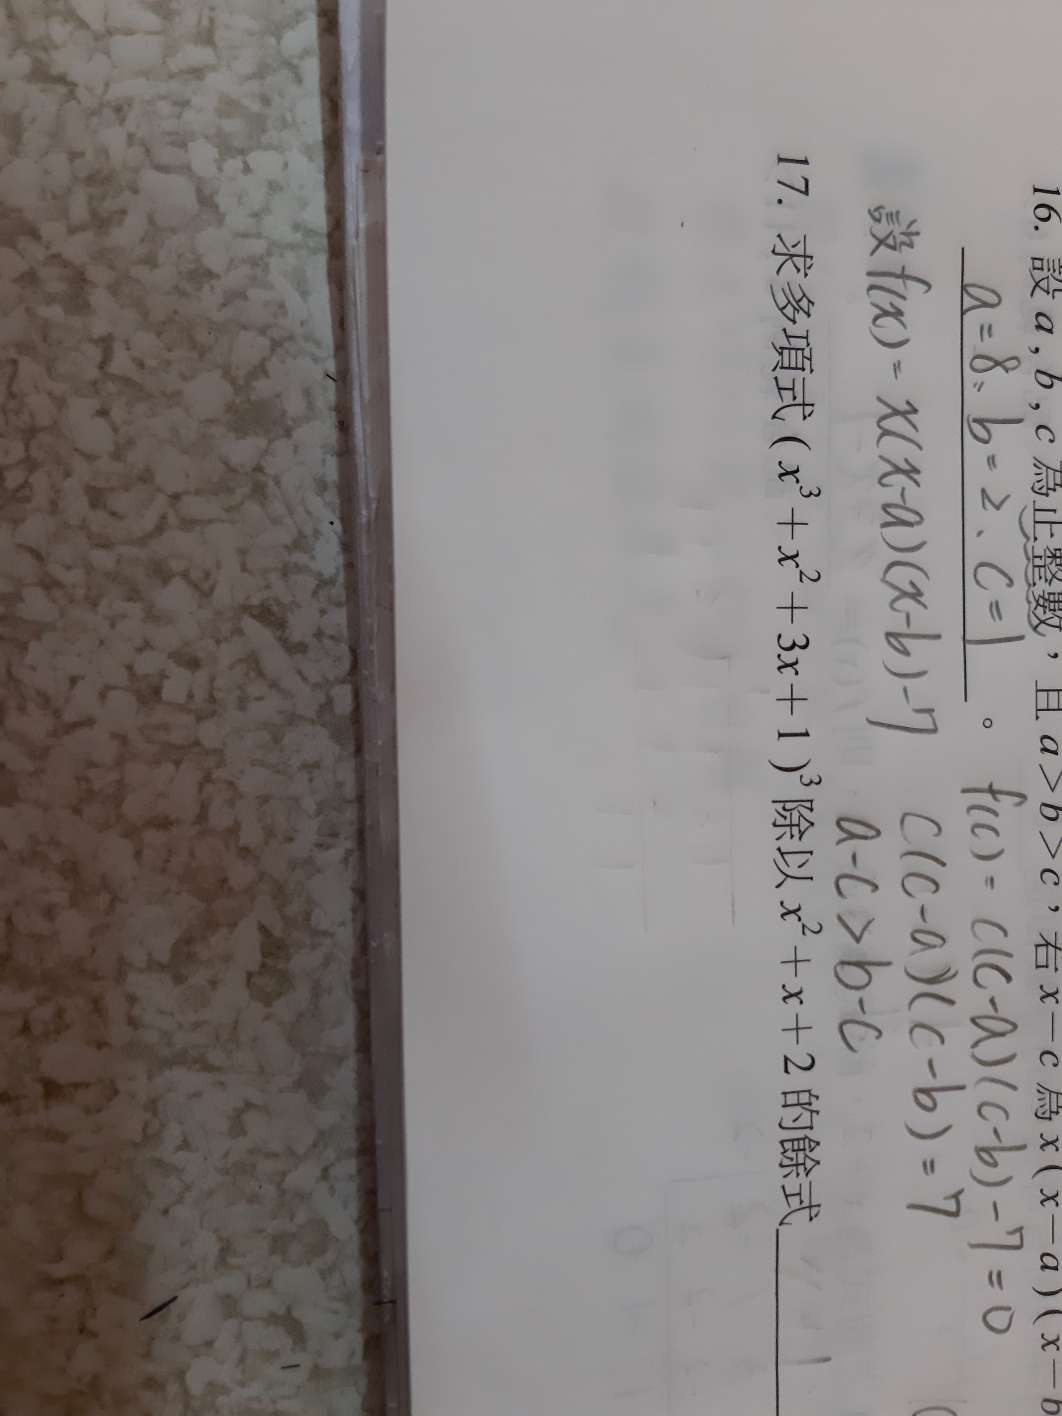 16. 設 a , b , c 為正整數，且 a > b > c，若 x－c 為 x ( x－a ) ( x－b
a=8、b=2、c=1 。 f(c) = c(c-a)(c-b)-7=0
c(c-a)(c-b)=7
設 f(x) = x(x-a)(x-b)-7
a-c>b-c
17. 求多項式 ( x³＋x²＋3x＋1 )³ 除以 x²＋x＋2 的餘式